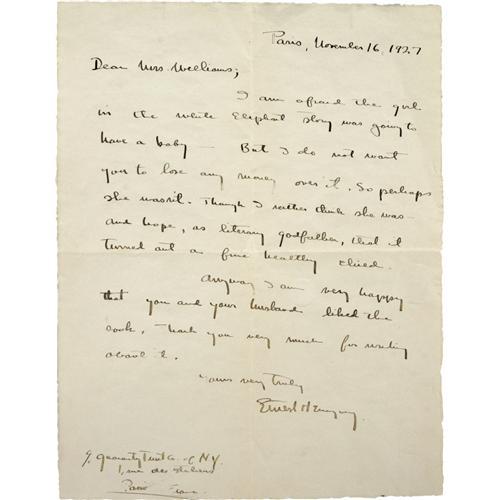 Paris, November 16, 1927
Dear Mrs Williams;
I am afraid the girl
in the White Elephant story was going to
have a baby — But I do not want
you to lose any money over it. So perhaps
she wasn't. Though I rather think she was —
and hope, as literary godfather, that it
turned out a fine healthy child.
Anyway I am very happy
that you and your husband liked the
book. Thank you very much for writing
about it.
Yours very truly
Ernest Hemingway.
% Guaranty Trust Co. of N.Y.
1, rue des Italiens
Paris France